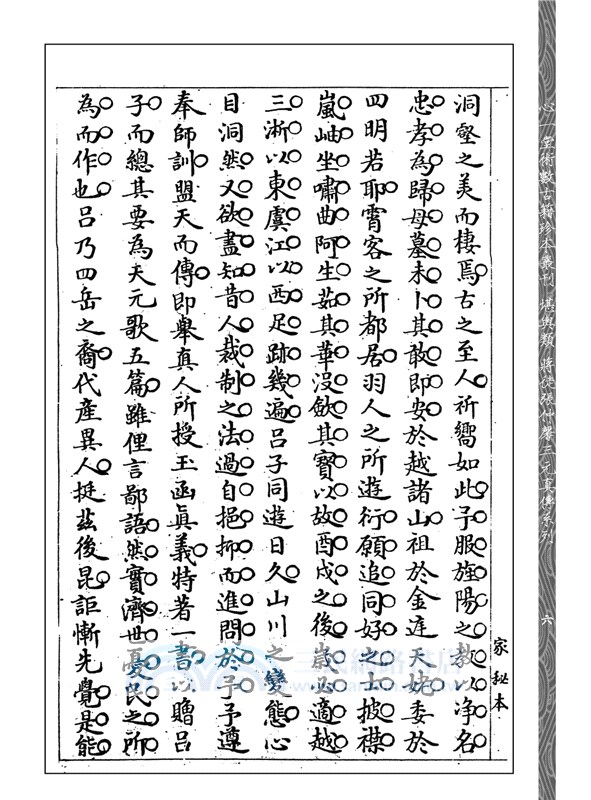 洞壑之美而棲焉古之至人祈嚮如此予服旌陽之教以淨名
忠孝為歸母墓未卜其敢即安於越諸山祖於金庭天姥委於
四明若耶霄客之所都居羽人之所遊衍願追同好之士披襟
嵐岫坐嘯曲阿生茹其華沒歛其寳以故酉戌之後歲必適越
三浙以東虞江以西足跡幾遍呂子同遊日久山川之變態心
目洞然又欲盡知昔人裁制之法過自挹抑而進問於予予遵
奉師訓盟天而傳即舉真人所授玉函真義特著一書以贈呂
子而總其要為天元歌五篇雖俚言鄙語然實濟世憂民之所
為而作也呂乃四岳之裔代產異人挺茲後昆詎慚先覺是能
家秘本
心一堂術數古籍珍本叢刊 堪輿類 蔣徒張仲馨三元真傳系列
六
三民網路書店